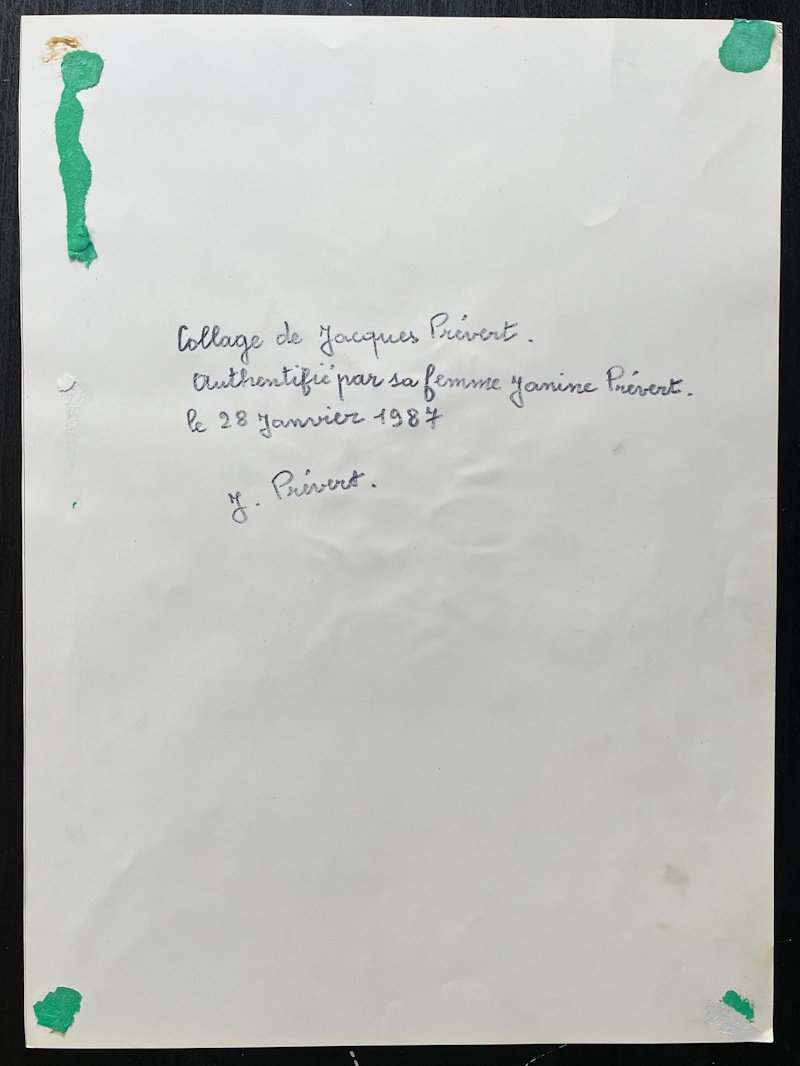 Collage de Jacques Prévert.
Authentifié par sa femme Janine Prévert.
le 28 Janvier 1987
J. Prévert.